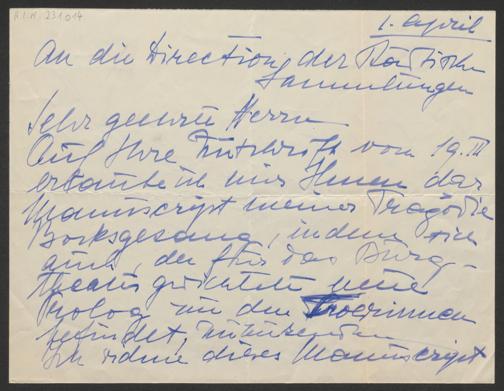 H.I.N. 231014
1. April
An die Direction der Städtischen
Sammlungen
Sehr geehrte Herrn
Auf Ihre Zuschrift vom 19. III
erlaube ich mir Ihnen das
Manuscript meiner Tragödie
Bocksgesang, indem sich
auch der für das Burg-
theater gedichtete neue
Prolog zu den Troerinnen
befindet, zuzusenden
Ich widme dieses Manuscript